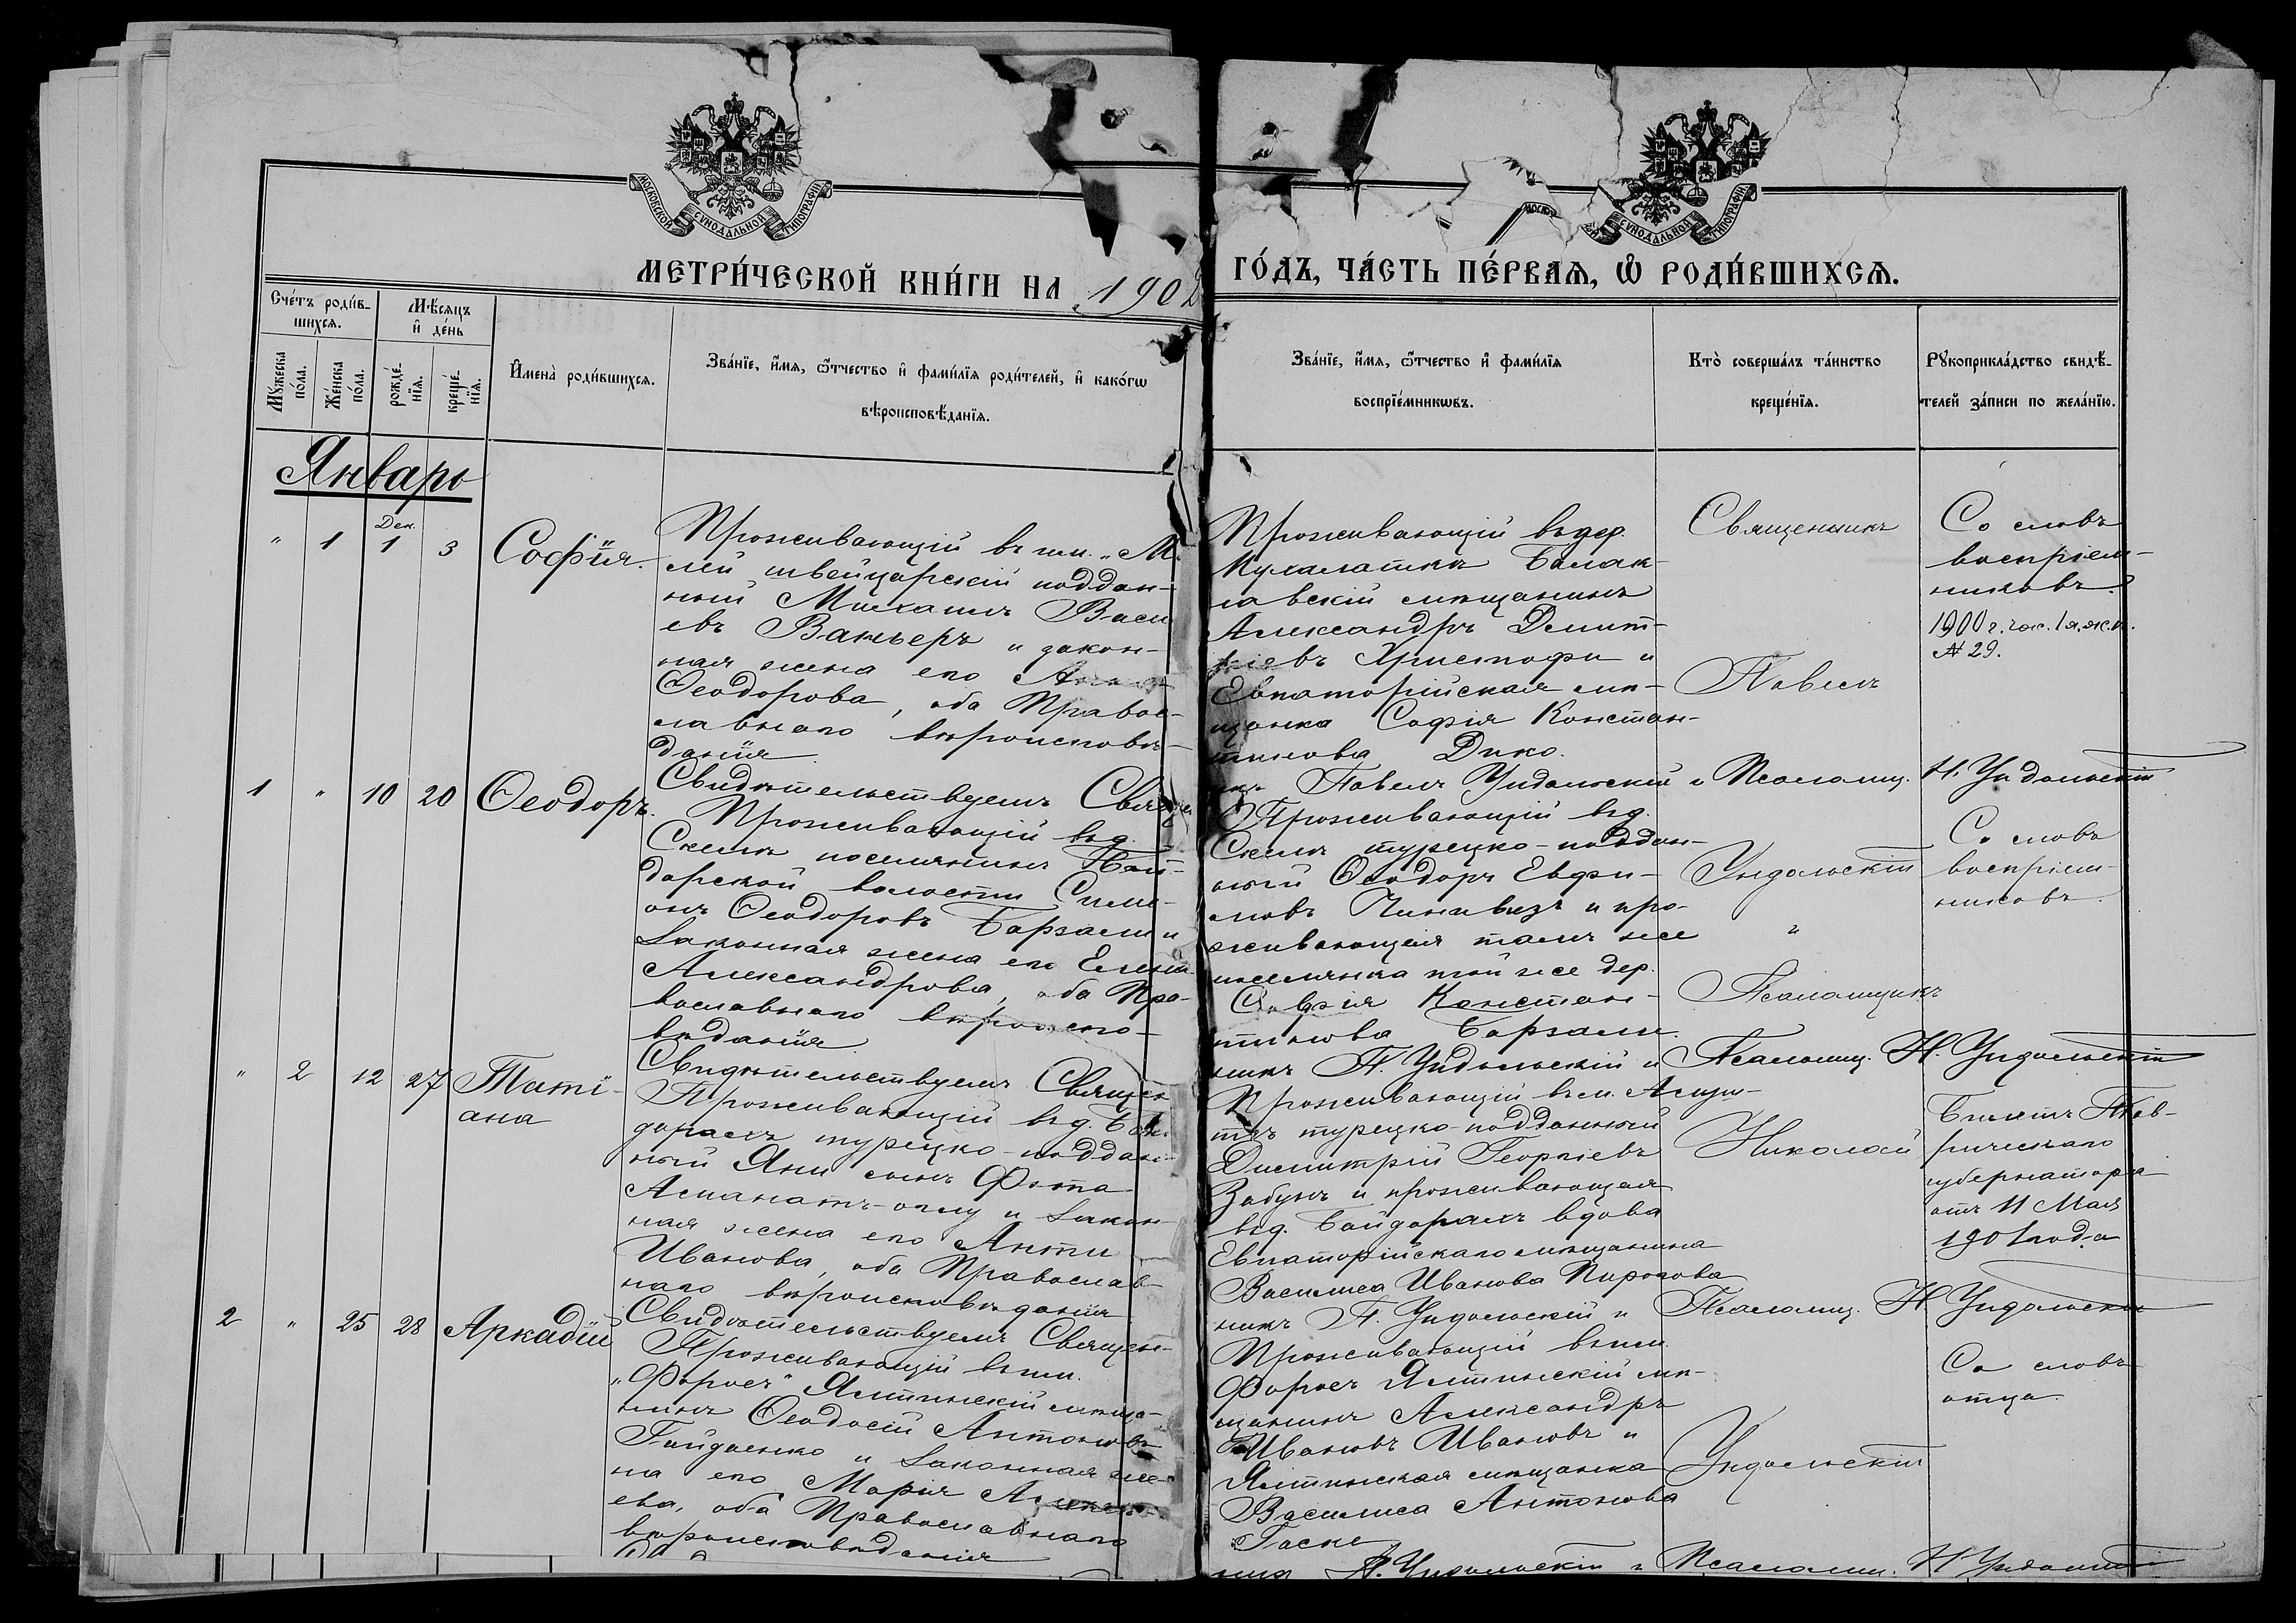 МОСКОВСКОЙ СѴНОДАЛЬНОЙ ТИПОГРАФІИ
МОСКО СѴНОДАЛЬНОЙ ТИПОГРАФІИ
МЕТРИ́ЧЕСКОЙ КНИ́ГИ НА 1902 ГО́ДЪ, ЧА́СТЬ ПЕ́РВАѦ, Ѽ РОДИ́ВШИХСѦ.
Сче́тъ роди́в-
шихсѧ.
Мꙋ́жеска по́ла.
Же́нска по́ла.
Мѣ́сѧцъ
и҆ де́нь
рожде́-
нїѧ.
креще́-
нїѧ.
И҆мена̀ роди́вшихсѧ.
Зва́нїе, и҆́мѧ, ѻ҆́тчество и҆ фами́лїѧ роди́телей, и҆ како́гѡ
вѣроисповѣ́данїѧ.
Зва́нїе, и҆́мѧ, ѻ҆́тчество и҆ фами́лїѧ
воспрїе́мникѡвъ.
Кто̀ соверша́лъ та́инство
креще́нїѧ.
Рꙋкоприкла́дство свидѣ́-
телей за́писи по жела́нїю.
Январь
" 1 Дек. 1 3 Софія.
Проживающій въ им. „М
лей швейцарскій поддан-
ный Михаилъ Васи
евъ Ваньеръ и закон-
ная жена его
Ѳеодорова, оба Правос-
лавнаго вѣроисповѣ-
данія
Свидѣтельствуемъ Священ
Проживающій въ дер.
Мухалаткѣ Балак-
лавскій мѣщанинъ
Александръ Димит-
ріевъ Христофи и
Евпаторійская мѣ-
щанка Софія Констан-
тинова Дико.
къ Павелъ Ундольскій и Псаломщ. Н. Ундольскій
Священникъ
Павелъ
Со словъ
воспріем-
никовъ.
1900 г. №29.
1 " 10 20 Ѳеодоръ.
Проживающій въ д.
Скели поселянинъ Бай-
дарской волости Симе-
онъ Ѳеодоровъ Барзали и
законная жена его Елена
Александрова, оба Пра-
вославнаго вѣроиспо-
вѣданія.
Свидѣтельствуемъ Священ
Проживающій въ д.
Скели турецко-поддан-
ный Ѳеодоръ Евфи-
мовъ и про-
живающая тамъ же
поселянка той же дер.
Софія Констан-
тинова Барзали.
никъ П. Ундольскій и Псаломщ. Н. Ундольскій
Ундольскій
"
Псаломщикъ
Со словъ
воспріем-
никовъ.
" 2 12 27 Таті-
ана
Проживающій въ д. Бай-
дарахъ турецко-поддан-
ный Яни сынъ Фота
Асманатъ-оглу и закон-
ная жена его Анти
Иванова, оба Православ-
наго вѣроисповѣданія
Свидѣтельствуемъ Священ-
Проживающій въ м. Алуш-
тѣ турецко-подданный
Димитрій Георгіевъ
Забунъ и проживающая
въ д. Байдарахъ вдова
Евпаторійскаго мѣщанина
Василиса Иванова Пирогова
никъ П. Ундольскій и Псаломщ. Н. Ундольскій
Николай
Билетъ Тав-
рическаго
губернатора
отъ 11 Мая
1901 года
2 " 25 28 Аркадій
Проживающій въ им.
„Форосъ" Ялтинскій мѣща-
нинъ Ѳеодосій Антоновъ
Гайдаенко и законная же-
на его Марія Алексѣ-
ева, оба Православнаго
вѣроисповѣданія
Проживающій въ им.
Форосъ Ялтинскій мѣ-
щанинъ Александръ
Ивановъ Ивановъ и
Ялтинская мѣщанка
Василиса Антонова
Гаске
никъ П. Ундольскій и Псаломщ. Н. Ундольскій
Ундольскій
Со словъ
отца.